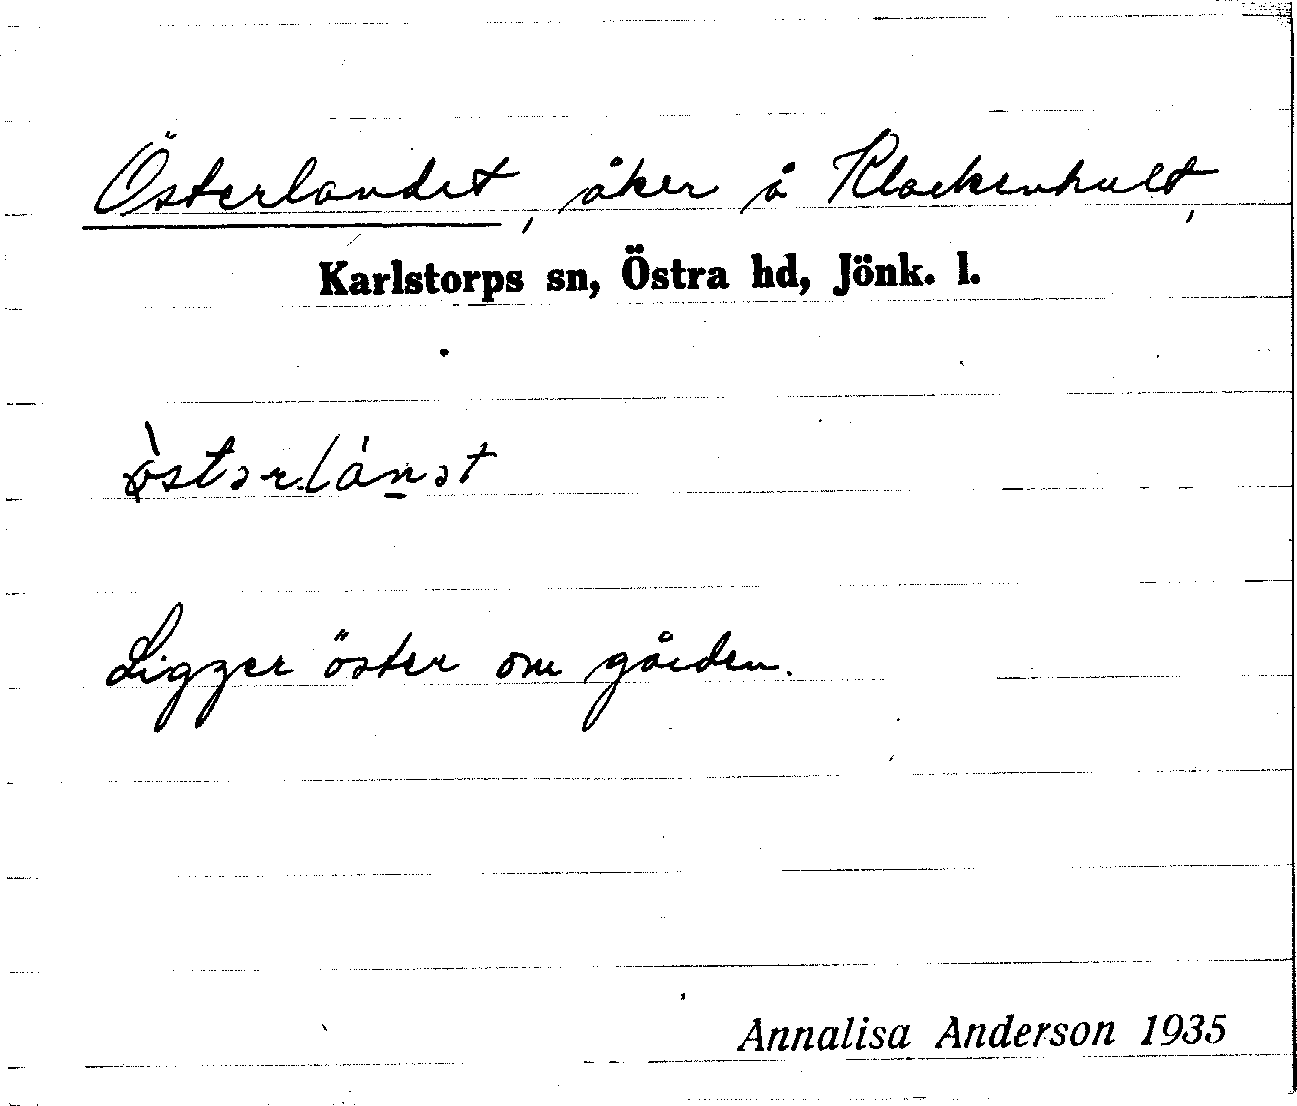 Österlandet, åker å Klockenhult,
Karlstorps sn, Östra hd, Jönk. l.
ö̀stərlánət
Ligger öster om gården.
Annalisa Anderson 1935